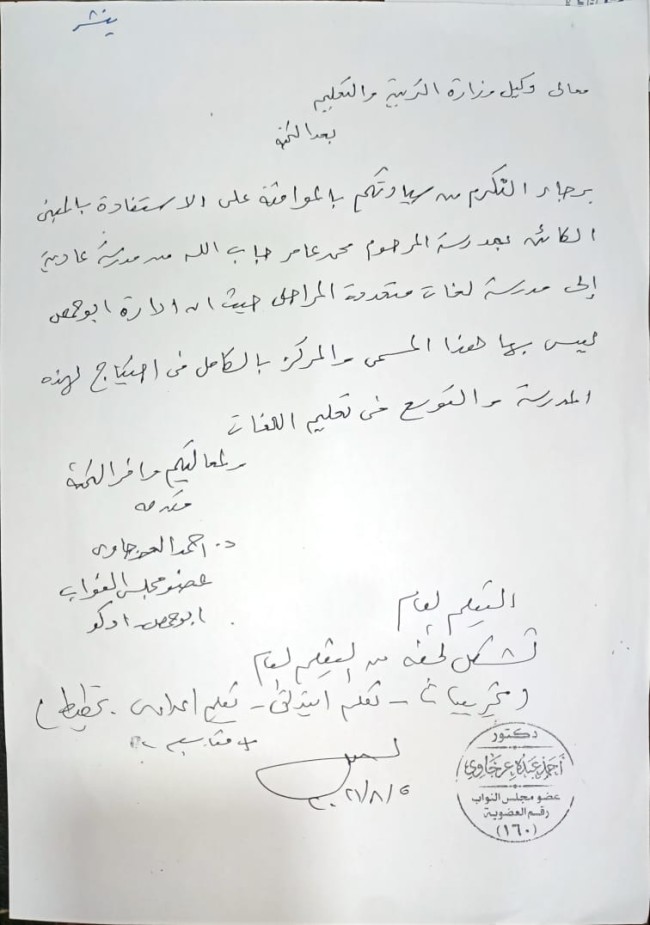 ينشر
معالى وكيل وزارة التربية والتعليم
بعد التحية
برجاء التكرم من سيادتكم بالموافقة على الاستفادة بالمبنى
الكائن بمدرسة المرحوم محمد عامر جاب الله من مدرسة عادية
إلى مدرسة لغات متعددة المراحل حيث ان ادارة ابوحمص
ليس بها هذا المسمى والمركز بالكامل فى احتياج لهذه
المدرسة والتوسع فى تعليم اللغات
ولمعاليكم وافر التحية
مقدمه
د. احمد العرجاوى
عضو مجلس النواب
ابوحمص - ادكو
التعليم العام
تشكل لجنة من التعليم العام
(تجريبيات - تعليم ابتدائى - تعليم اعدادى - تخطيط)
دكتور
أحمد عبده عرجاوي
عضو مجلس النواب
رقم العضوية
(١٦٠)